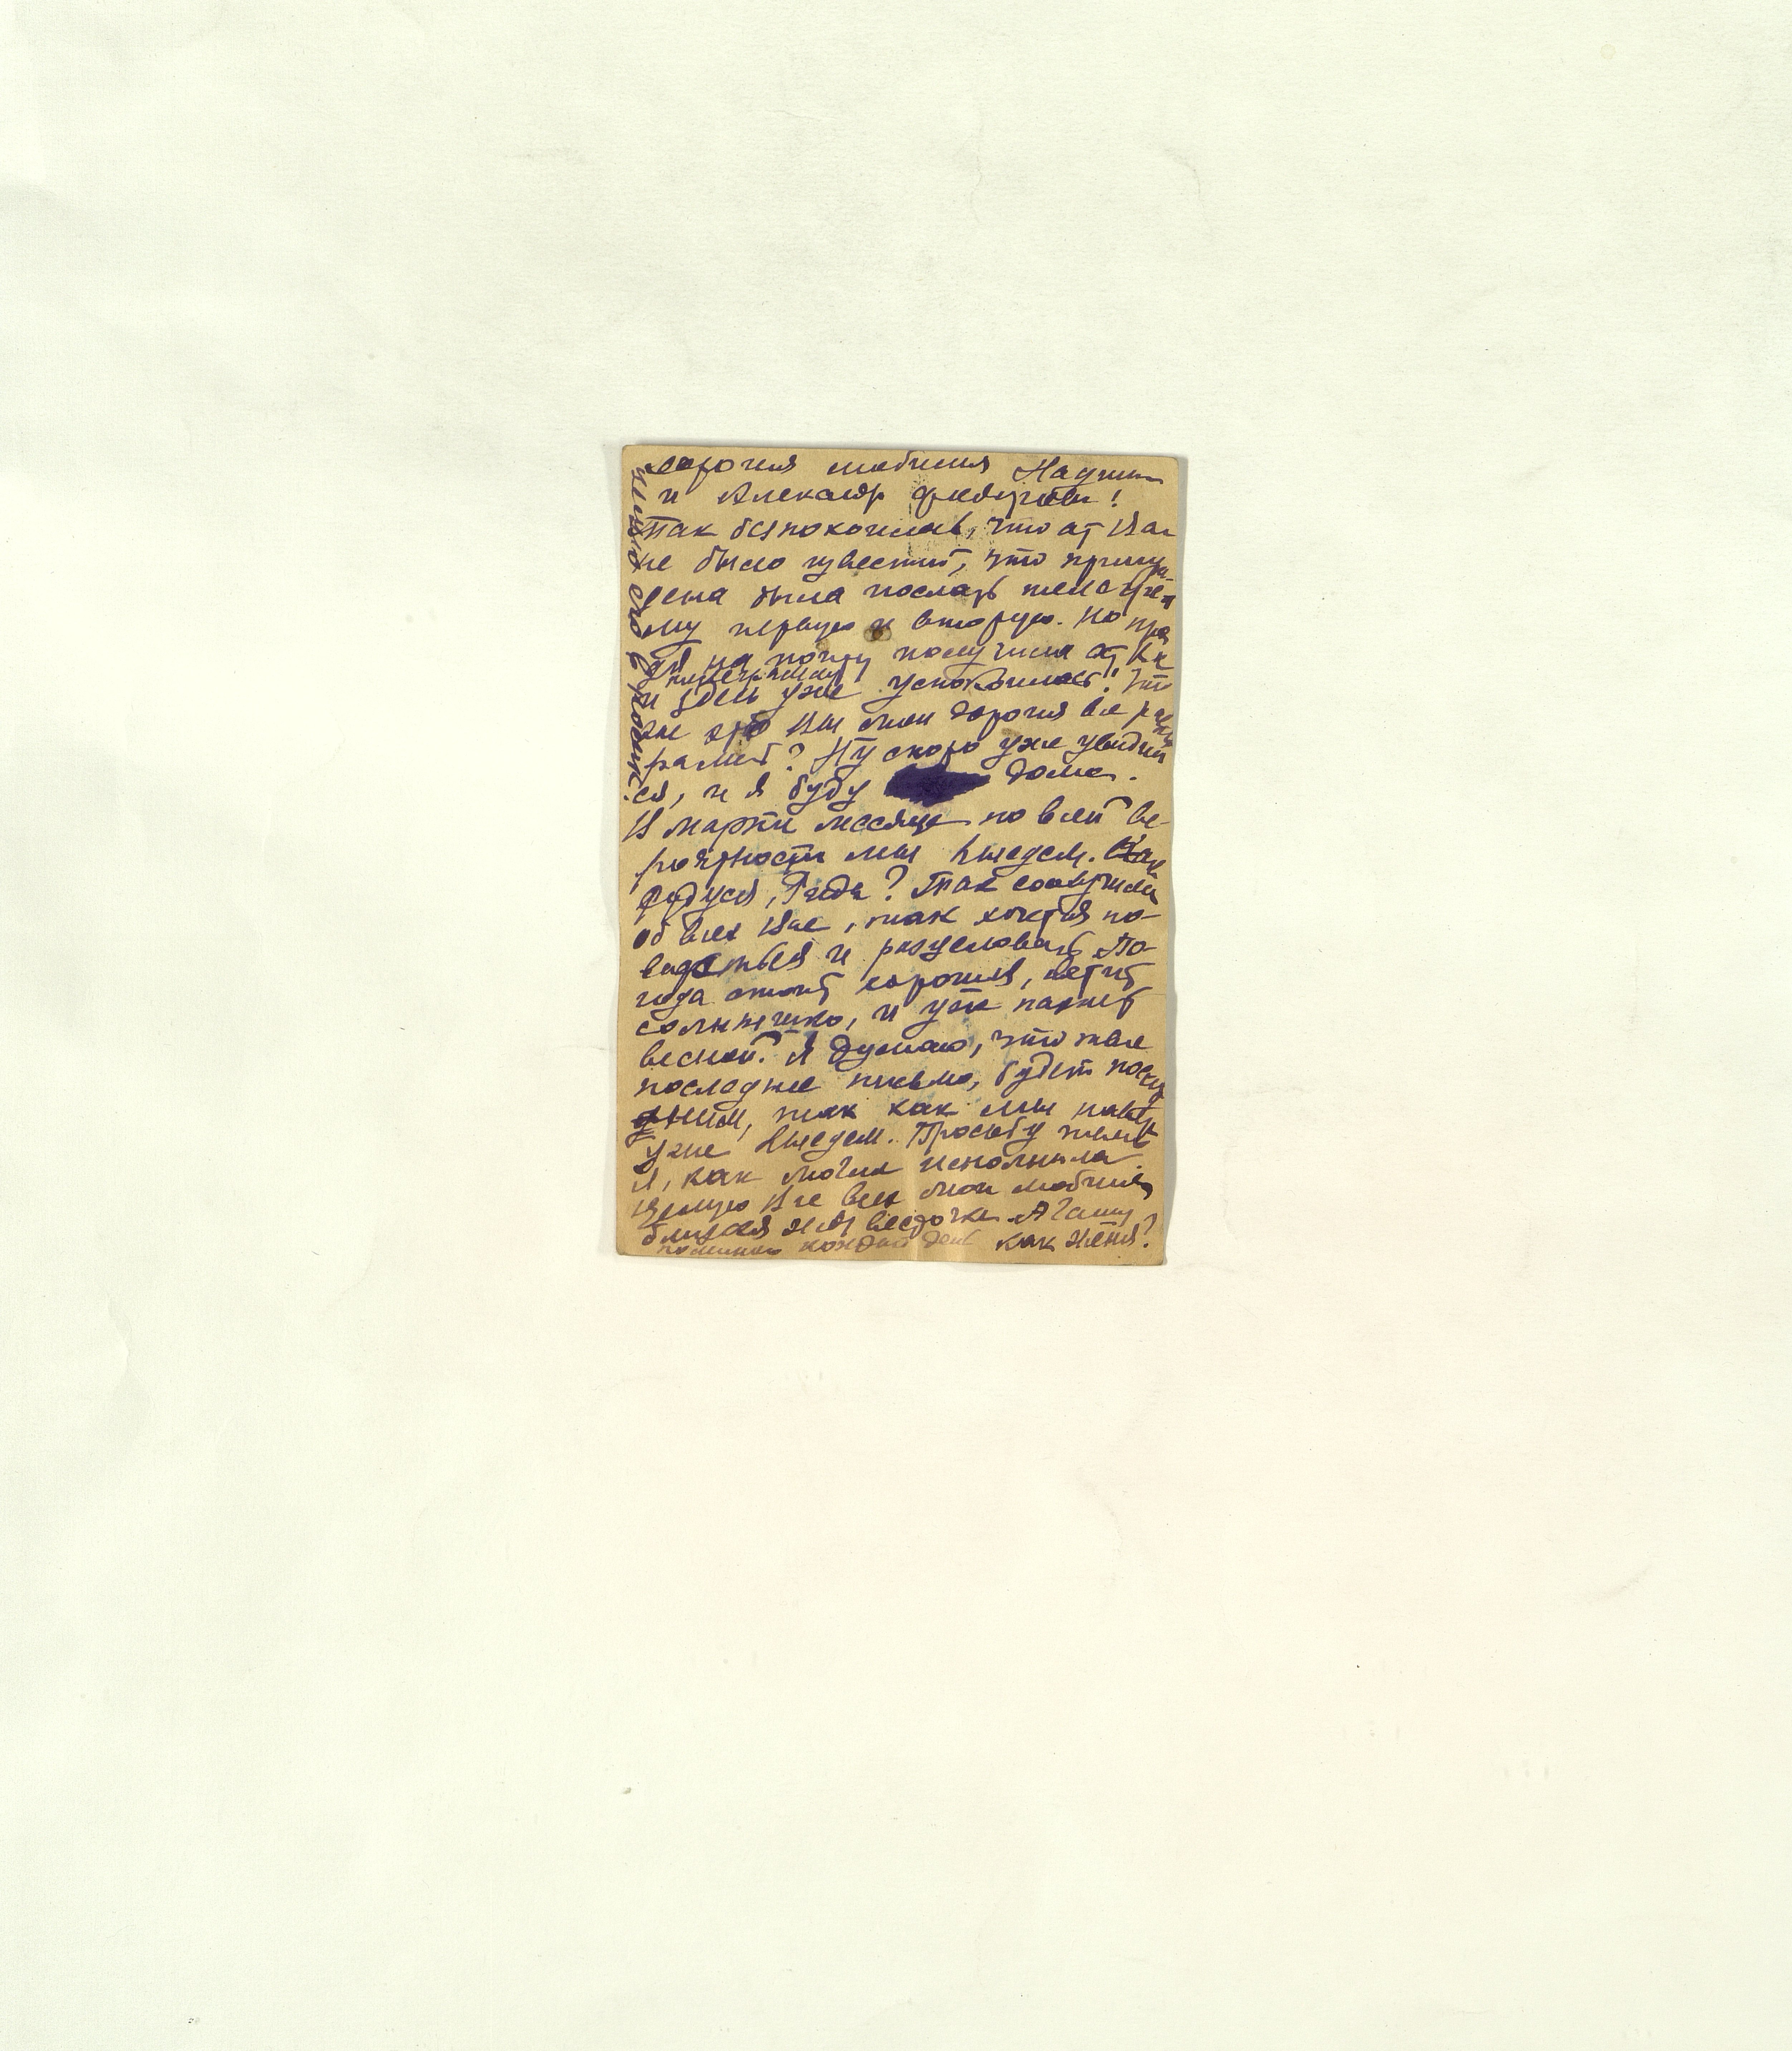 дорогия любимия Надюша
и Александр Федорович!
Так беспокоилась, что от Вас
не было известий, что принуж-
дена была послать телеграм-
му первую и вторую. Но при
на почту получила от Ва
телеграмму
и здесь уже успокоилась! Что
же это Вы мои дорогия все
? Ну скоро уже увидим
ся, и я буду дома.
В марте месяце по всей ве-
роятности мы выедем. Как
Федуся, ? Так соскучилась
об всех Вас, так хочется по-
видаться и расцеловать. По-
года стоит хорошия, светит
солнышко, и уже пахнет
весной. Я думаю, что мое
последнее письмо, будет послед
дним, так как мы
уже выедем. Просьбу
я, как могла исполнила.
Целую Вас всех мои любимия
близкия
поминаю каждый день как Женя?
его в